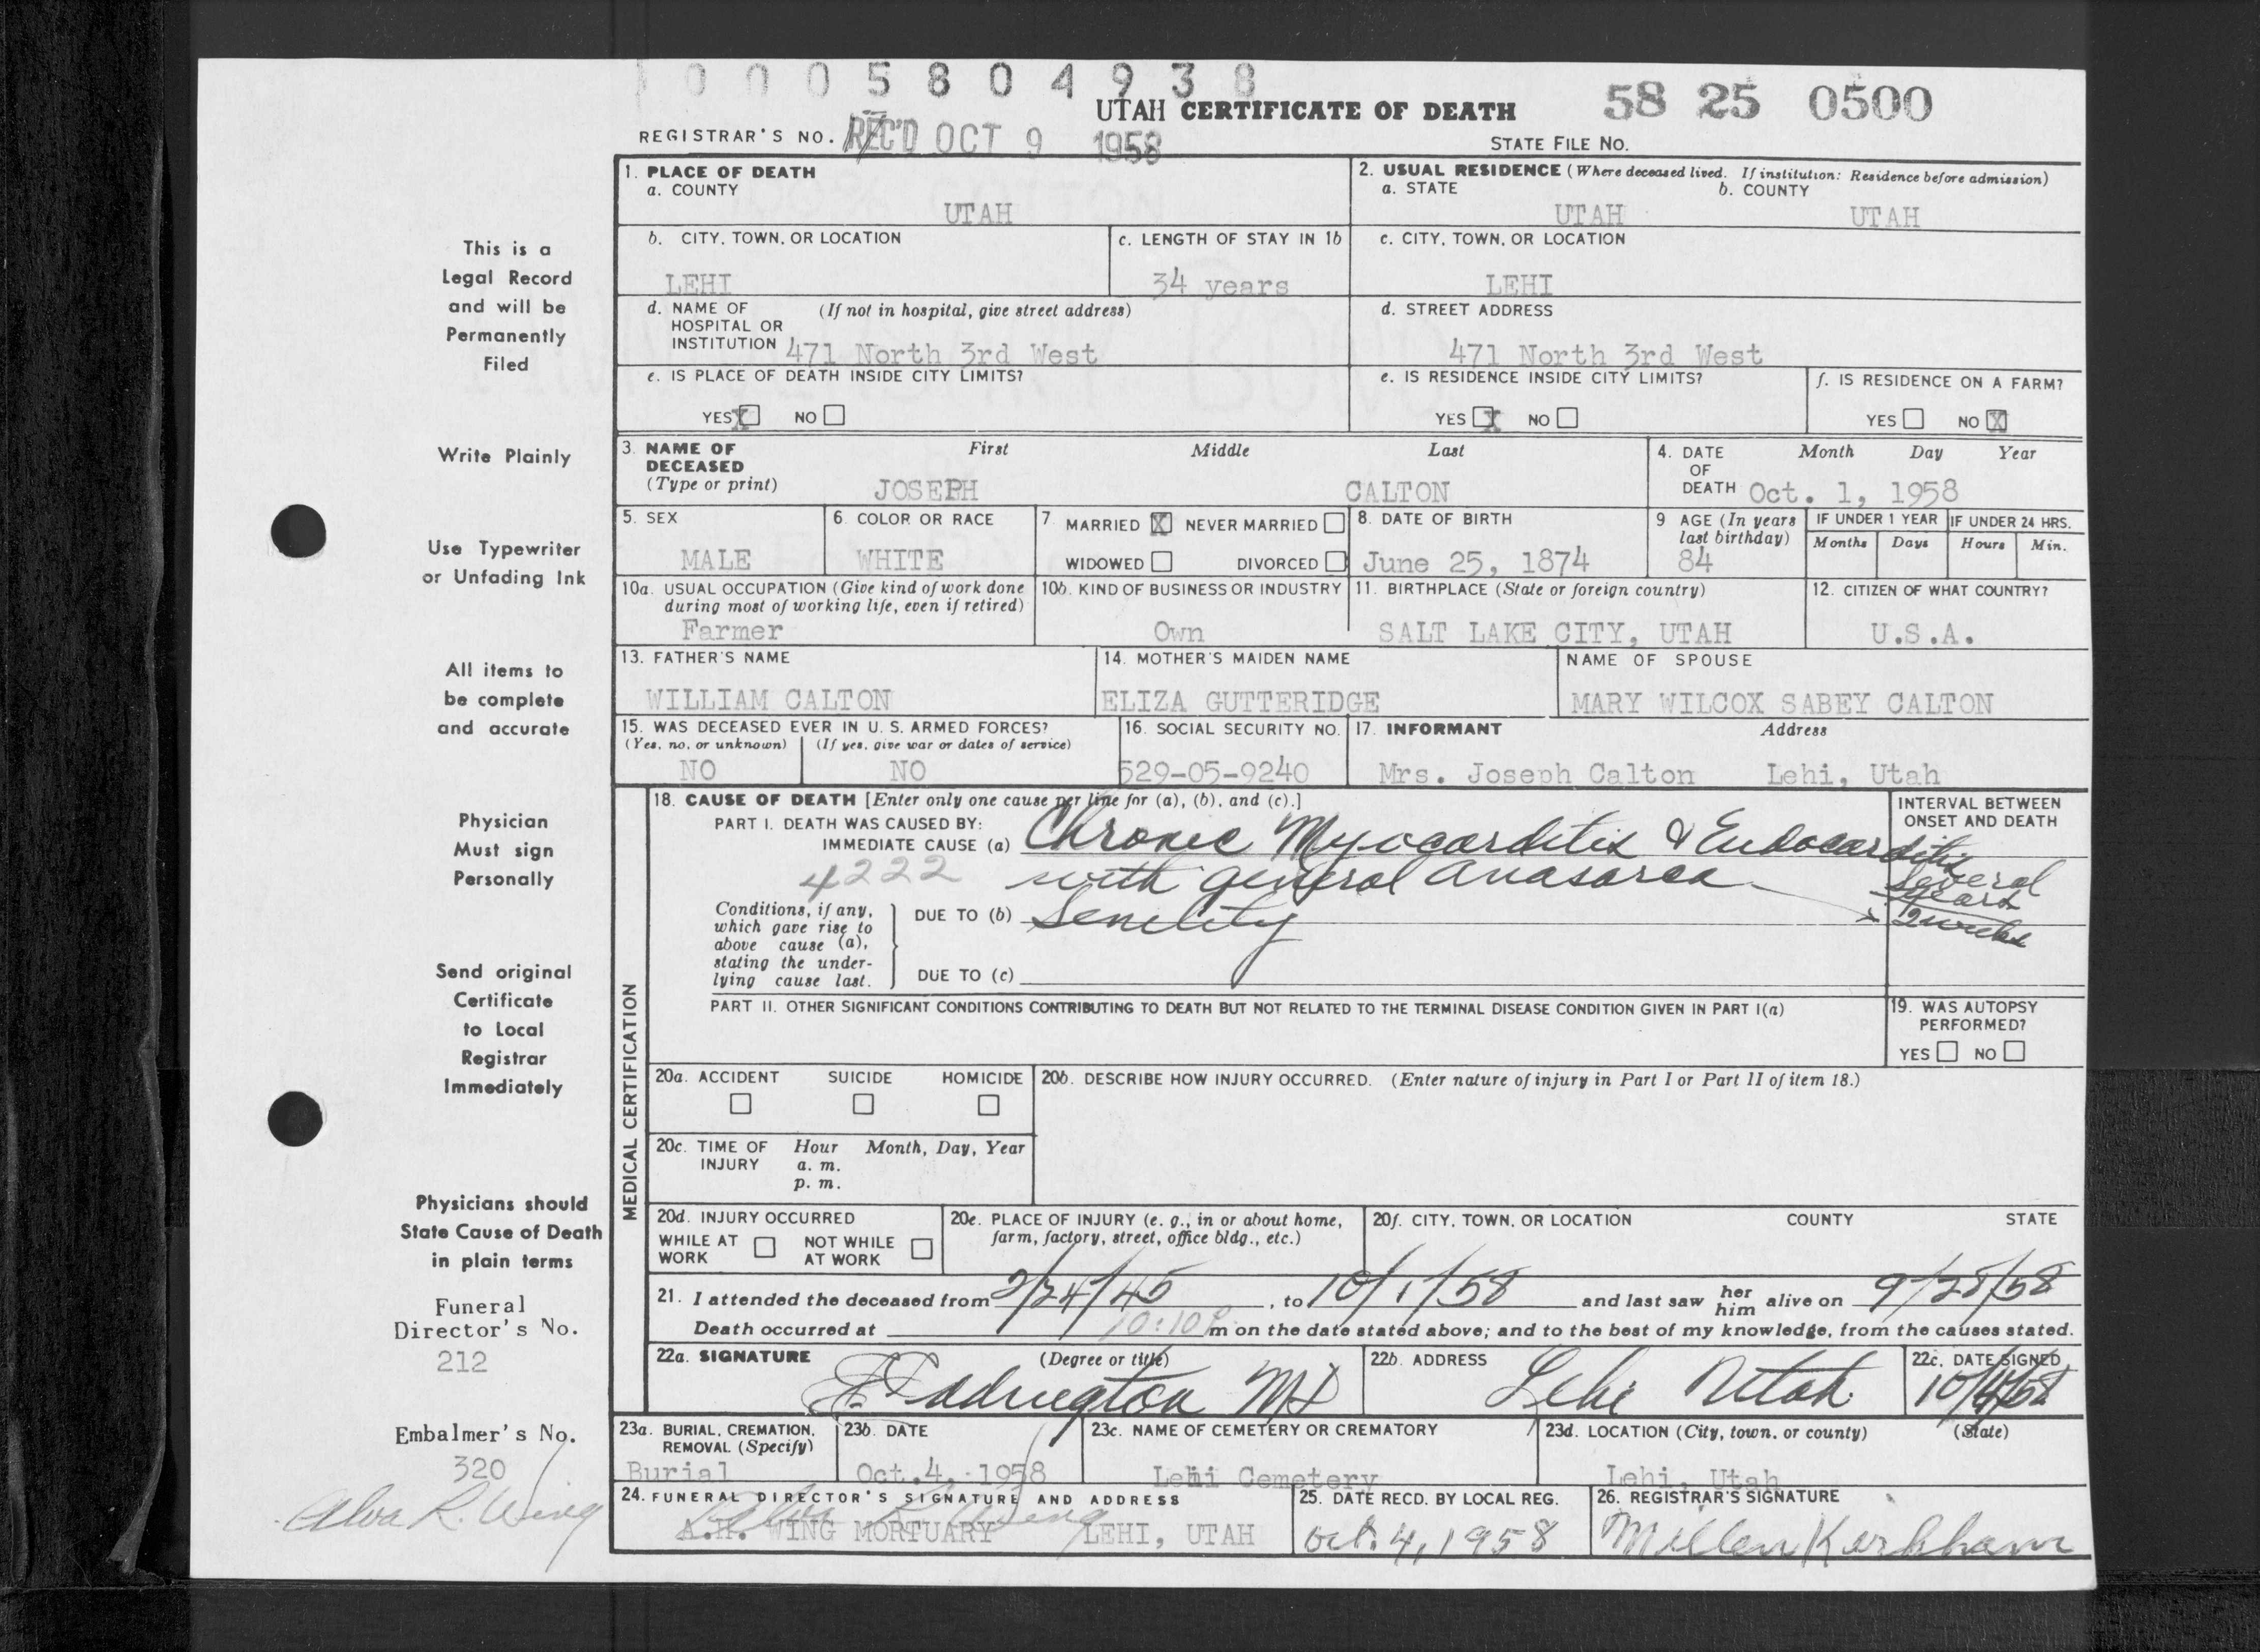 0005804938
UTAH CERTIFICATE OF DEATH
58 25 0500
REGISTRAR'S NO. REC'D OCT 9 1958
STATE FILE NO.
1. PLACE OF DEATH
a. COUNTY
UTAH
2. USUAL RESIDENCE (Where deceased lived. If institution: Residence before admission)
a. STATE b. COUNTY
UTAH UTAH
b. CITY, TOWN, OR LOCATION
LEHI
c. LENGTH OF STAY IN 1b
34 years
c. CITY, TOWN, OR LOCATION
LEHI
d. NAME OF (If not in hospital, give street address)
HOSPITAL OR
INSTITUTION 471 North 3rd West
d. STREET ADDRESS
471 North 3rd West
e. IS PLACE OF DEATH INSIDE CITY LIMITS?
YES X NO
e. IS RESIDENCE INSIDE CITY LIMITS?
YES X NO
f. IS RESIDENCE ON A FARM?
YES NO X
3. NAME OF First Middle Last
DECEASED
(Type or print) JOSEPH CALTON
4. DATE Month Day Year
OF
DEATH Oct. 1, 1958
5. SEX
MALE
6. COLOR OR RACE
WHITE
7. MARRIED X NEVER MARRIED
WIDOWED DIVORCED
8. DATE OF BIRTH
June 25, 1874
9 AGE (In years
last birthday)
84
IF UNDER 1 YEAR
Months Days
IF UNDER 24 HRS.
Hours Min.
10a. USUAL OCCUPATION (Give kind of work done
during most of working life, even if retired)
Farmer
10b. KIND OF BUSINESS OR INDUSTRY
Own
11. BIRTHPLACE (State or foreign country)
SALT LAKE CITY, UTAH
12. CITIZEN OF WHAT COUNTRY?
U.S.A.
13. FATHER'S NAME
WILLIAM CALTON
14. MOTHER'S MAIDEN NAME
ELIZA GUTTERIDGE
NAME OF SPOUSE
MARY WILCOX SABEY CALTON
15. WAS DECEASED EVER IN U. S. ARMED FORCES?
(Yes, no, or unknown) (If yes, give war or dates of service)
NO NO
16. SOCIAL SECURITY NO.
529-05-9240
17. INFORMANT Address
Mrs. Joseph Calton Lehi, Utah
MEDICAL CERTIFICATION
18. CAUSE OF DEATH [Enter only one cause per line for (a), (b), and (c).]
PART I. DEATH WAS CAUSED BY:
IMMEDIATE CAUSE (a) Chronic Myocarditis & Endocarditis
4222 with general Anasarca
INTERVAL BETWEEN
ONSET AND DEATH
Several
years
2 weeks
Conditions, if any,
which gave rise to
above cause (a),
stating the under-
lying cause last.
DUE TO (b) Senility
DUE TO (c)
PART II. OTHER SIGNIFICANT CONDITIONS CONTRIBUTING TO DEATH BUT NOT RELATED TO THE TERMINAL DISEASE CONDITION GIVEN IN PART I(a)
19. WAS AUTOPSY
PERFORMED?
YES NO
20a. ACCIDENT SUICIDE HOMICIDE
20b. DESCRIBE HOW INJURY OCCURRED. (Enter nature of injury in Part I or Part II of item 18.)
20c. TIME OF Hour Month, Day, Year
INJURY a. m.
p. m.
20d. INJURY OCCURRED
WHILE AT NOT WHILE
WORK AT WORK
20e. PLACE OF INJURY (e. g., in or about home,
farm, factory, street, office bldg., etc.)
20f. CITY, TOWN, OR LOCATION COUNTY STATE
21. I attended the deceased from 2/24/45, to 10/1/58 and last saw her him alive on 9/28/58
Death occurred at 10:10 P m on the date stated above; and to the best of my knowledge, from the causes stated.
22a. SIGNATURE (Degree or title)
Eddington MD
22b. ADDRESS
Lehi Utah
22c. DATE SIGNED
10/4/58
23a. BURIAL, CREMATION,
REMOVAL (Specify)
Burial
23b. DATE
Oct. 4, 1958
23c. NAME OF CEMETERY OR CREMATORY
Lehi Cemetery
23d. LOCATION (City, town, or county) (State)
Lehi, Utah
24. FUNERAL DIRECTOR'S SIGNATURE AND ADDRESS
Alva R. Wing
A.H. WING MORTUARY LEHI, UTAH
25. DATE RECD. BY LOCAL REG.
Oct. 4, 1958
26. REGISTRAR'S SIGNATURE
Millen Kirkham
This is a
Legal Record
and will be
Permanently
Filed
Write Plainly
Use Typewriter
or Unfading Ink
All items to
be complete
and accurate
Physician
Must sign
Personally
Send original
Certificate
to Local
Registrar
Immediately
Physicians should
State Cause of Death
in plain terms
Funeral
Director's No.
212
Embalmer's No.
320
Alva R. Wing